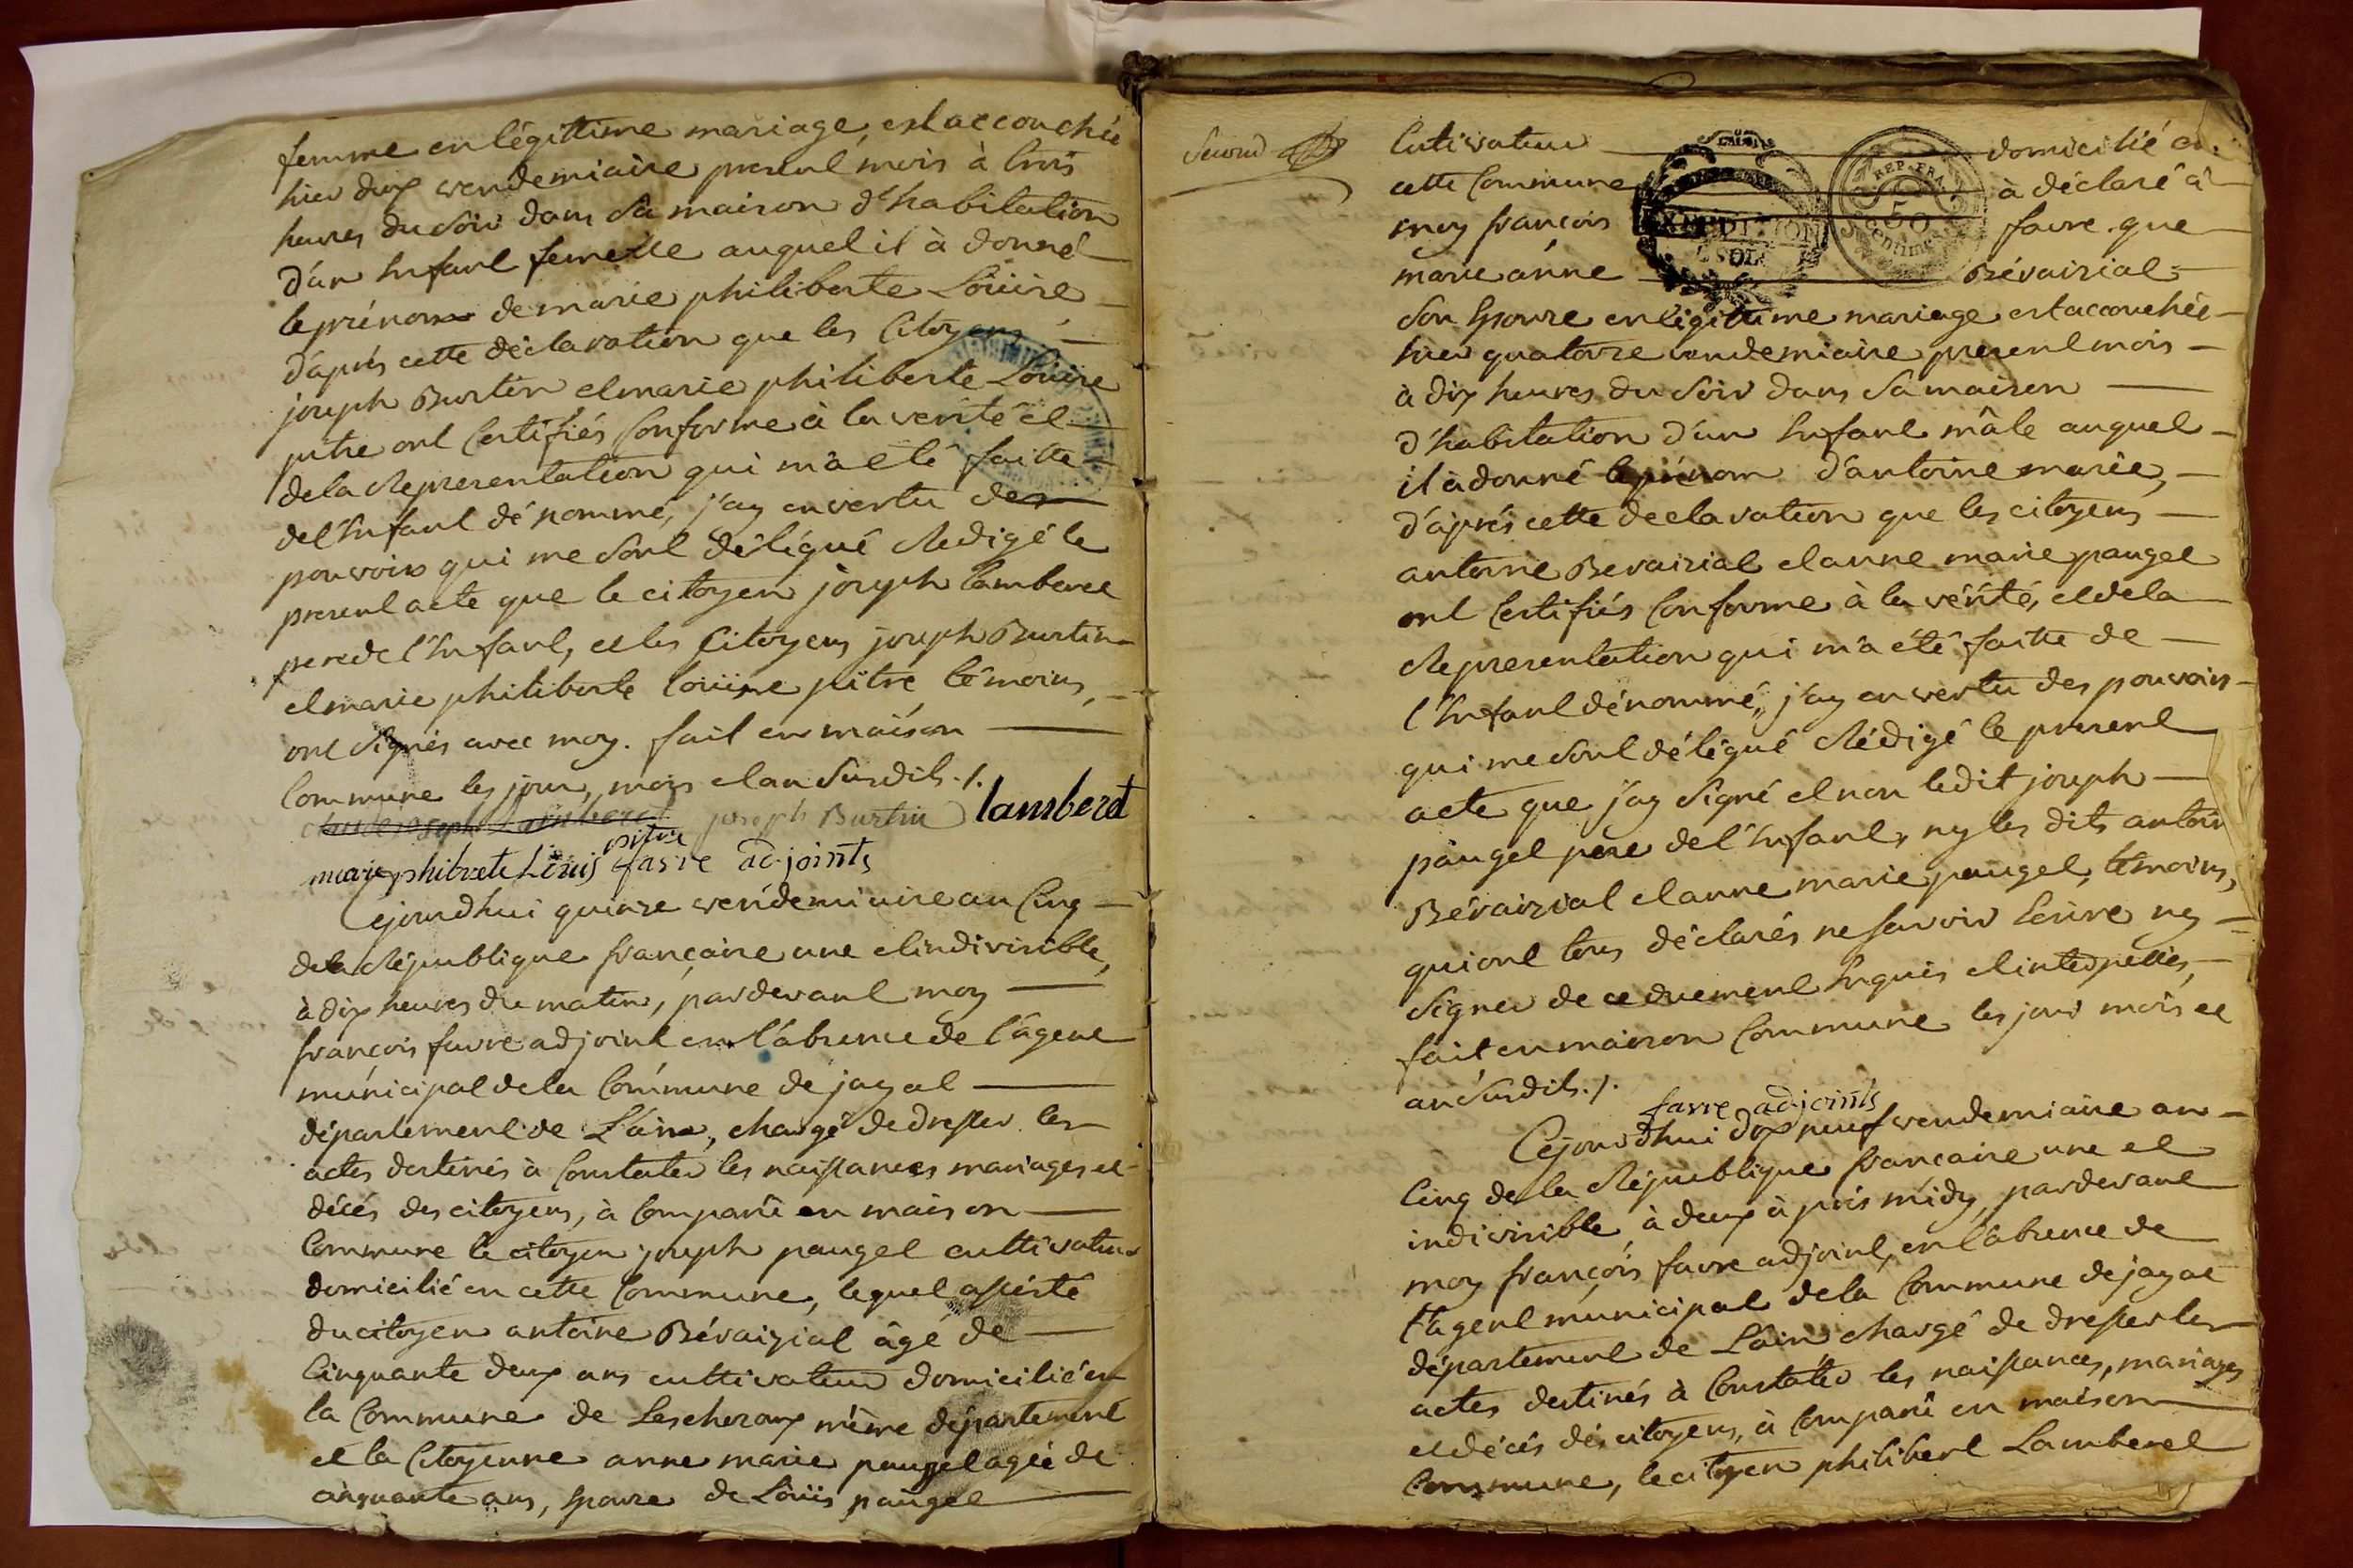 femme en légittime mariage, est accouchée
hier dix vendemiaire present mois à trois
heures du soir dans sa maison d'habitation
d'un Enfant femelle auquel il à donné
le prénom de marie philiberte Louise
d'après cette déclaration que les Citoyens
joseph Burtin et marie philiberte Louise
pitre ont Certifiés Conforme à la verité et
de la Representation qui m'a eté faitte
de l'Enfant dénommé, j'ay en vertu des
pouvoirs qui me sont délégué Redigé le
present acte que le citoyen joseph lamberet
pere de l'Enfant, et les Citoyens joseph Burtin
et marie philiberte louise pitre témoins,
ont signés avec moy. fait en maison
Commune les jour, mois et an susdits ./.
joseph Burtin lamberet
marie philberte Louis pitre favre adjoints
Cejourdhui quinze vendemiaire an Cinq
de la République française une et indivisible,
à dix heures du matin, pardevant moy
françois favre adjoint en l'absence de l'agent
municipal de la Commune de jayat
département de L'ain, chargé de dresser les
actes destinés à Constater les naissances mariages et
décès des citoyens, à Comparû en maison
Commune le citoyen joseph paugel cultivateur
domicilié en cette Commune, lequel assisté
du citoyen antoine Bévaizial âgé de
Cinquante deux ans cultivateur domicilié en
la Commune de Lescheroux même département
et la Citoyenne anne marie paugel agée de
cinquante ans, Epouse de Loüis paugel
Second
Cutivateur domicilié en
cette Commune à déclaré à
moy françois favre que
marie anne Bévaizial
REP. FRA.
50
centimes
son Epouse en légittime mariage est accouchée
hier quatorze vendemiaire present mois
à dix heures du soir dans sa maison
d'habitation d'un Enfant mâle auquel
il à donné le prénom d'antoine marie,
d'après cette declaration que les citoyens
antoine Bevaizial et anne marie paugel
ont Certifiés Conforme à la vérité, et de la
Representation qui m'a été faitte de
l'Enfant dénommé, j'ay en vertu des pouvoirs
qui me sont délégué Rédigé le present
acte que j'ay signé et non ledit joseph
paugel père de l'Enfant, ny les dits antoin
Bévaizial et anne marie paugel, témoins,
qui ont tous déclarés ne savoir Ecrire ny
signer de ce duement Enquis et interpellés,
fait en maison Commune les jour mois et
an susdits ./.
favre adjoints
Cejourdhui dix neuf vendemiaire an
Cinq de la République française une et
indivisible, à deux à près midy, pardevant
moy françois favre adjoint, en l'absence de
l'agent municipal de la Commune de jayat
département de L'ain chargé de dresser les
actes destinés à Constater les naissances, mariages
et décès des citoyens, à Comparû en maison
Commune, le citoyen philibert Lamberet